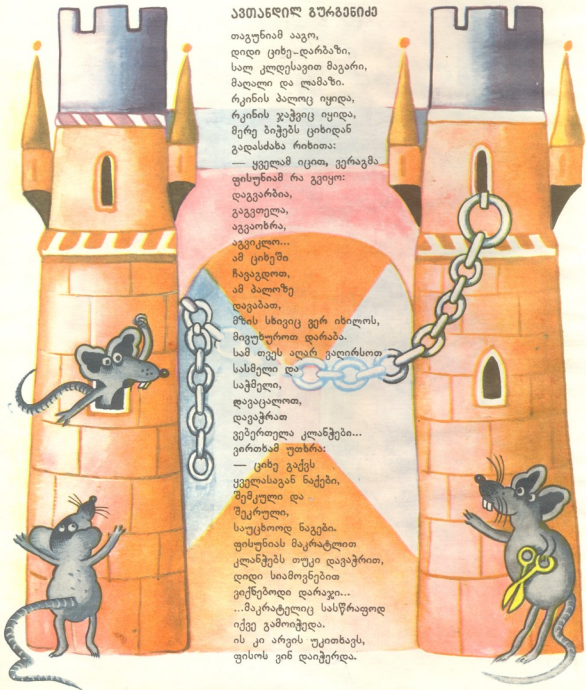 ავთანდილ გურგენიძე
თაგუნიამ ააგო,
დიდი ციხე-დარბაზი,
სალ კლდესავით მაგარი,
მაღალი და ლამაზი.
რკინის პალოც იყიდა,
რკინის ჯაჭვიც იყიდა,
მერე ბიჭებს ციხიდან
გადასძახა რიხითა:
— ყველამ იცით, ვერაგმა
ფისუნიამ რა გვიყო:
დაგვარბია,
გაგვთელა,
აგვაოხრა,
აგვიკლო...
ამ ციხეში
ჩავაგდოთ,
ამ პალოზე
დავაბათ,
მზის სხივიც ვერ იხილოს,
მივუხუროთ დარაბა.
სამ თვეს აღარ ვაღირსოთ
სასმელი და
საჭმელი,
დავაცალოთ,
დავაჭრათ
ვებერთელა კლანჭები...
ვირთხამ უთხრა:
— ციხე გაქვს
ყველასაგან ნაქები,
შემკული და
შეკრული,
საუცხოოდ ნაგები.
ფისუნიას მაკრატლით
კლანჭებს თუკი დავაჭრით,
დიდი სიამოვნებით
ვიქნებოდი დარაჯი...
...მაკრატელიც სასწრაფოდ
იქვე გამოიჭედა.
ის კი არვის უკითხავს,
ფისოს ვინ დაიჭერდა.